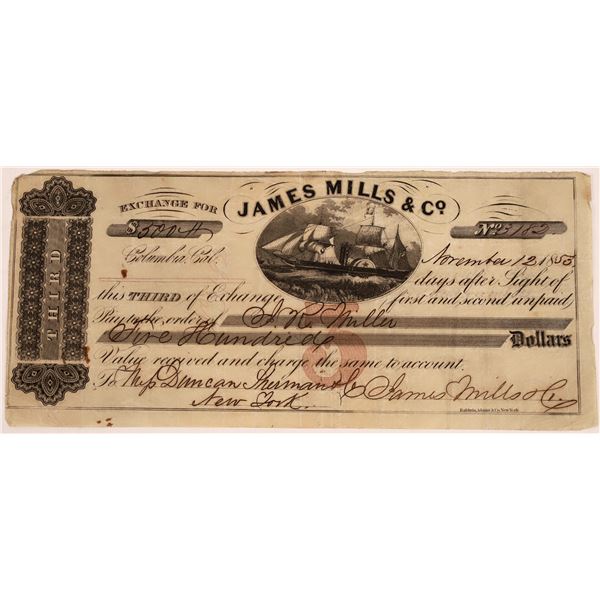 THIRD
EXCHANGE FOR
JAMES MILLS & Co.
$500
No. 5182
Columbia, Cal.
November 12, 1855
days after Sight of
this THIRD of Exchange first and second unpaid
Pay to the order of A R. Miller
Five Hundred Dollars
Value received and charge the same to account.
To Mess Duncan Sherman & Co James Mills & Co.
New York.
Baldwin, Adams & Co. New York